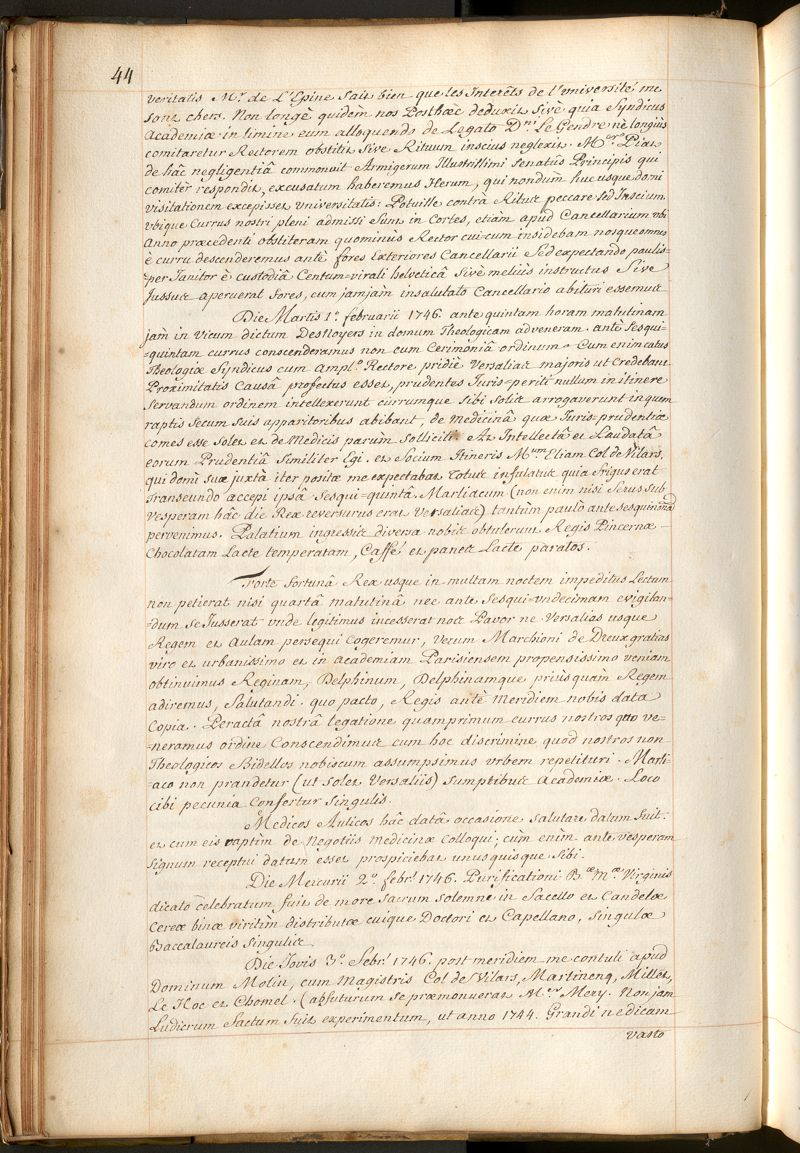 44
veritatis Mr. de L'Epine sait bien que les Interêts de l'université me
sont chers. Non longè quidèm nos Posthæc deduxit sivè quia Syndicus
Academiæ in limine eum alloquendo de Legato Dni. Le Gendre nè longiùs
comitaretur Rectorem obstitit sive Rituum inscius neglexit. Mger. Piat
de hâc negligentiâ commonuit Armigerum Illustrissimi Senatûs Principis qui
comitèr respondit, excusatum haberemus Herum, qui nondùm huc usque domi
visitationem excepisset Universitatis: Potuisse contrà Ritus peccare sed Inscium.
ubique Currus nostri pleni admissi sunt in Cortes, etiàm apud Cancellarium ubi
Anno præcedenti obstiterant quominùs Rector cui-cum insidebam nosque omnes
è curru descenderemus antè fores exteriores Cancellarii sed expectando paulis-
-per Janitor è custodiâ Centum-virali helveticâ sivè meliùs instructus sive
Jussus aperuerat fores, cum jamjàm insalutato Cancellario abituri essemus
Die Martis 1ª. februarii 1746. ante quintam horam matutinam
jàm in vicum dictum Des Noyers in domum Theologicam adveneram. antè sesqui-
-quintam currus conscenderamus non cum Cerimoniâ ordinum. Cum enim catus
Theologiæ Syndicus cum Ampl.º Rectore pridiè versalias majoris ut credebant
Proximitatis Causâ profectus esset, prudentes Juris-periti nullum in itinere
servandum ordinem intellexerunt currumque sibi solis arrogaverunt in quem
raptis secum suis apparitoribus abibant, de medicinâ quæ Juris-prudentiæ
comes esse solet et de Medicis parùm solliciti. At Intellectâ et Laudatâ
eorum Prudentiâ similiter Egi, et socium Itineris Mum. Eliam Col de Vilars,
qui domi suæ juxtà iter positæ me expectabat totus infulatus quia frigus erat
transeundo accepi ipsâ sesqui-quintâ. Marliacum (non enim nisi serus sub
vesperam hâc die Rex reversurus erat Versalias) tantùm paulò ante sesquinonã
pervenimus. Palatium ingressis diversa nobis obtulerunt Regis Pincernæ
Chocolatam Lacte temperatam, Caffé et panes Lacte paratos.
Forte fortunâ Rex usque in multam noctem impeditus Lectum
non petierat nisi quartâ matutinâ nec ante sesqui-undecimam evigilan-
-dum se jusserat unde legitimus incesserat nos Pavor ne Versalias usque
Regem et Aulam persequi cogeremur, verum Marchioni de Dreux gratias
viro et urbanissimo et in academiam Parisiensem propensissimo veniam
obtinuimus Reginam, Delphinum, Delphinamque priùs quàm Regem
adiremus, salutandi. quo pacto, Regis antè meridiem nobis data
Copia. Peractâ nostrâ legatione quamprimum currus nostros qtto ve-
-neramus ordine Conscendimus cum hoc discrimine quod nostros non
Theologicos Bidellos nobiscum assumpsimus urbem repetituri. Marli-
aco non prandetur (ut solet Versaliis) sumptibus Academiæ. Loco
cibi pecunia confertur singulis.
Medicos Aulicos hâc datâ occasione salutare datum fuit.
et cum eis raptim de Negotiis medicinæ colloqui; cùm enim ante vesperam
signum receptui datum esset prospiciebat unusquisque sibi.
Die Mercurii 2ª. febr. 1746. Purificationi Bæ. Mæ. Virginis
dicatô celebratum fuit de more sacrum solemne in sacello et Candelæ
Cereæ binæ viritìm distributæ cuique Doctori et Capellano, singulæ
Baccalaureis singulis
Die Jovis 3ª. febr. 1746. post meridiem me contuli apud
Dominum Molin, cum Magistris Col de Vilars, Martinenq, Millet,
Le Hoc et Chomel. (abfuturum se præmonuerat Mer. Mery. Non jam
Ludicrum factum fuit experimentum, ut anno 1744. Grandi ne dicam
vasto